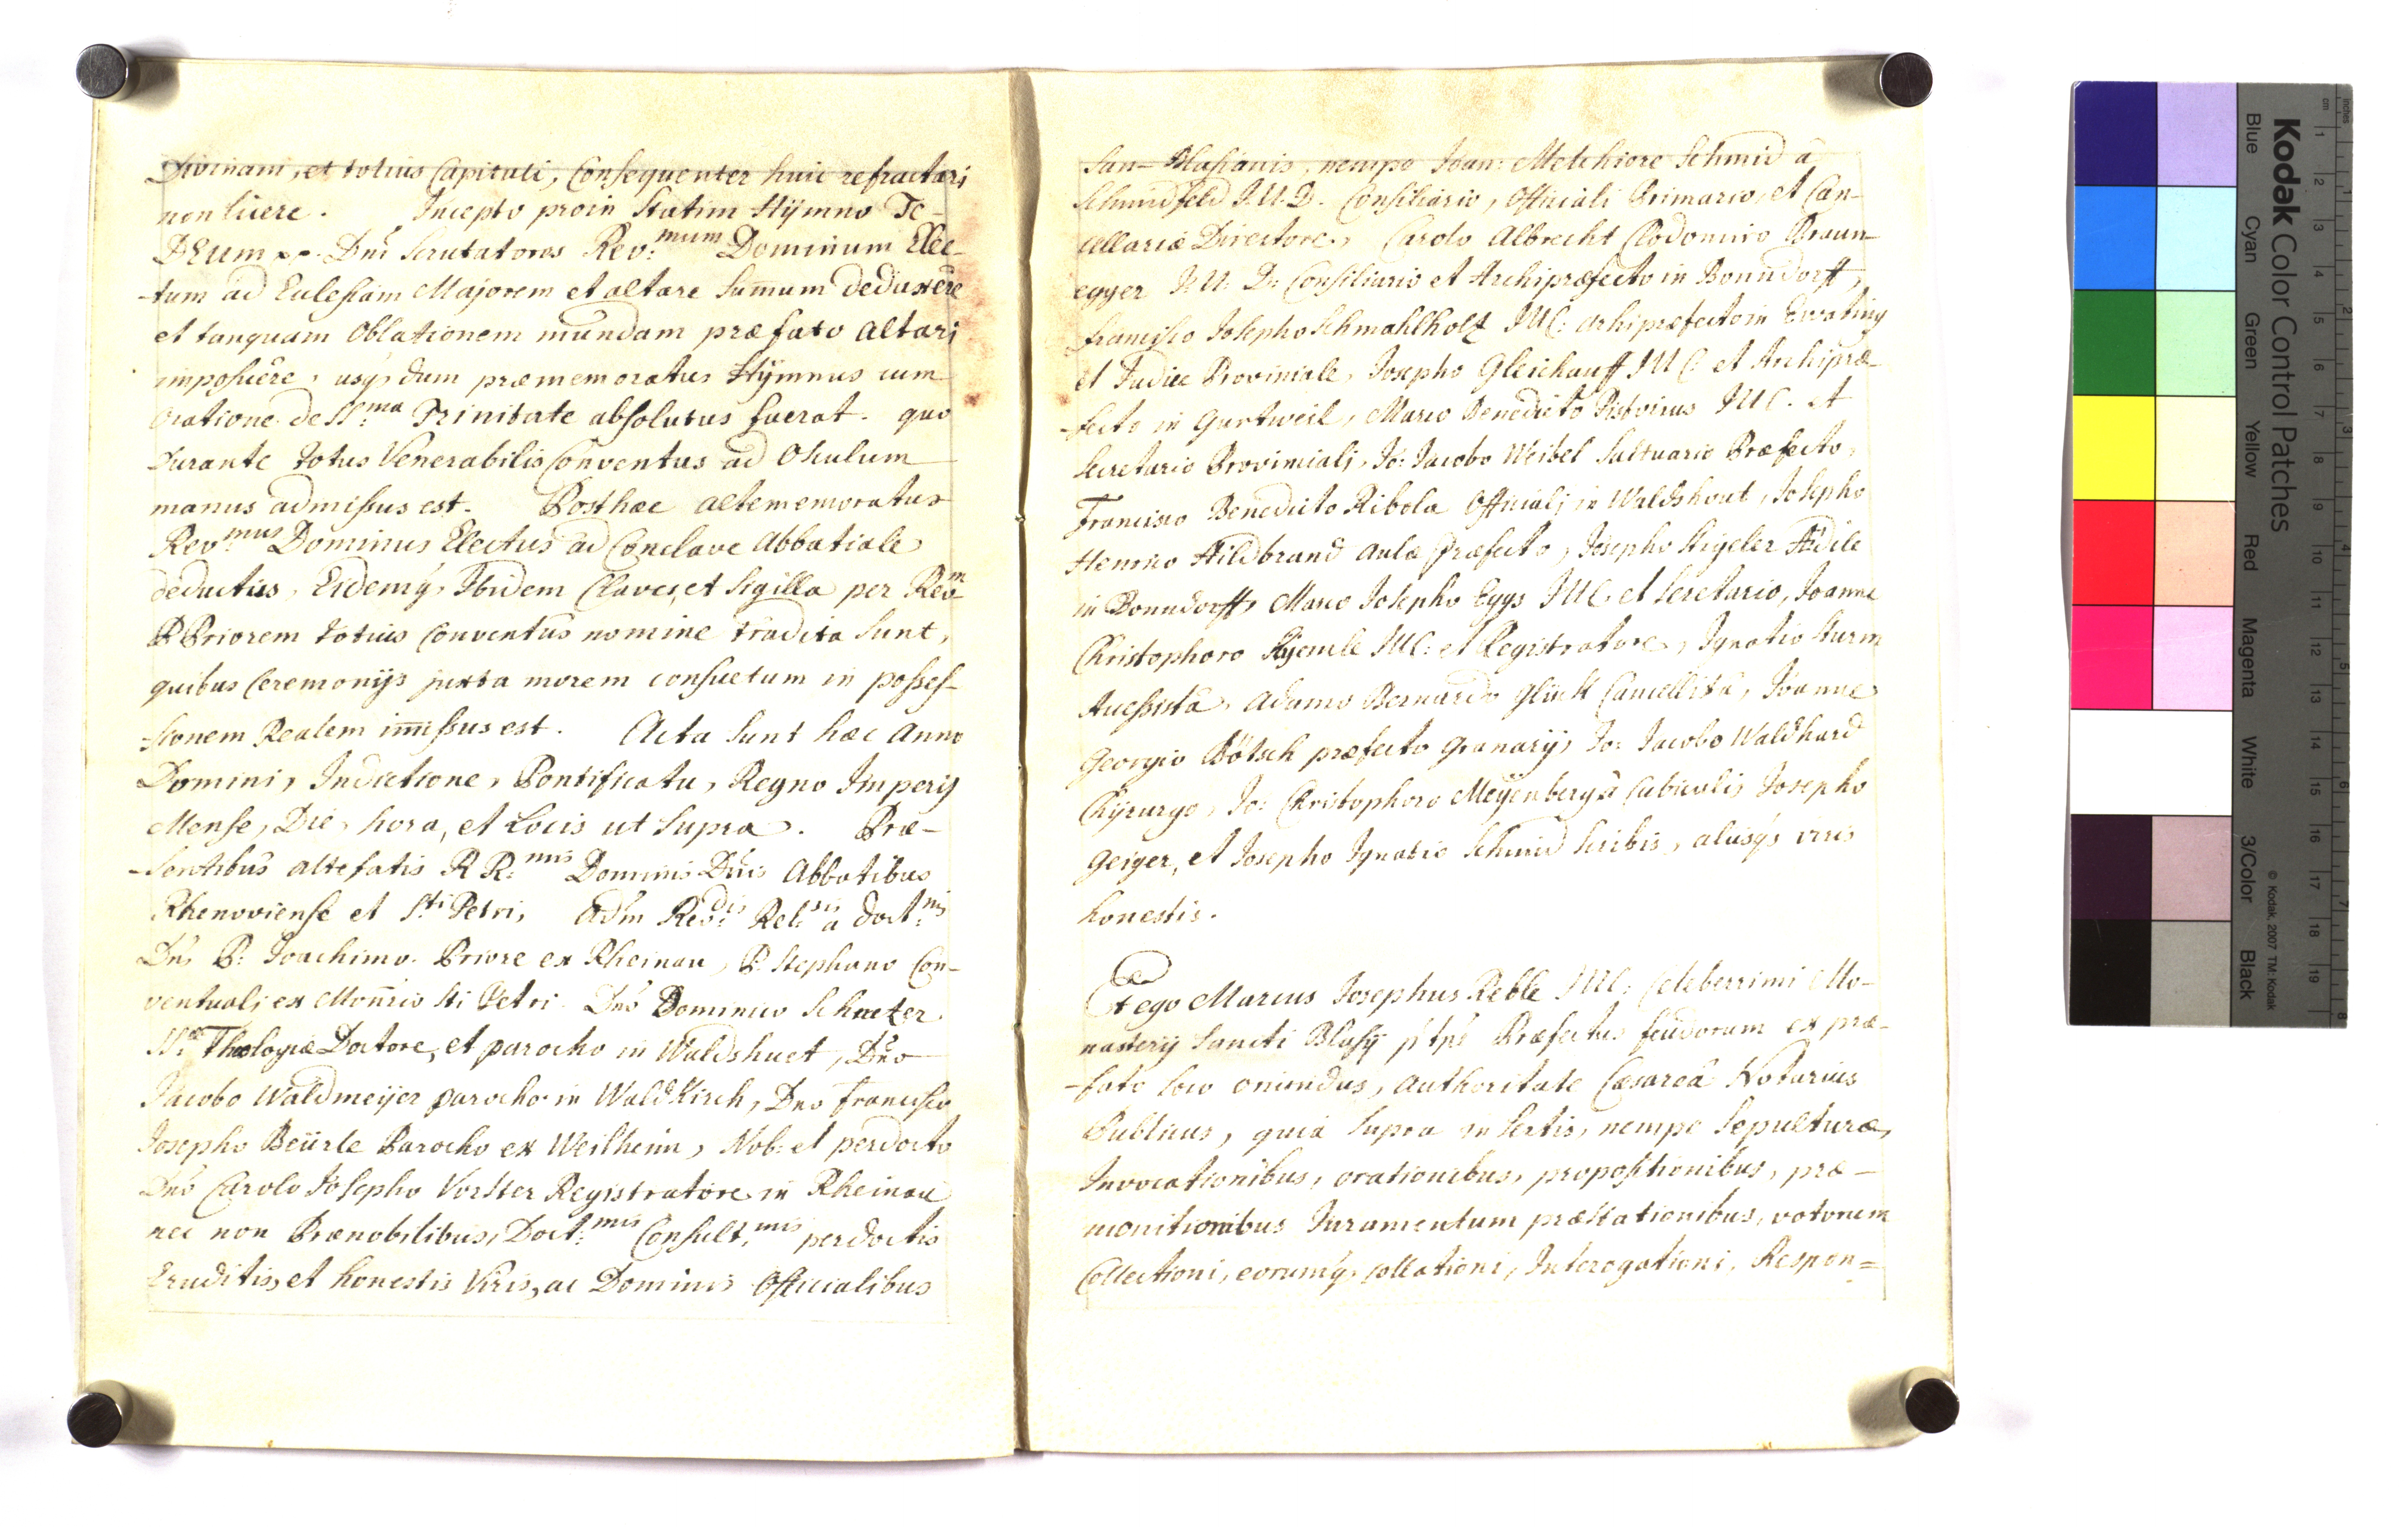 Divinam, et totius Capituli, Consequenter huic refractari
non licere. Incepto proin statim Hÿmno Te
DEum Dni Scrutatores Rev:mum Dominum Elec-
-tum ad Eulesiam Majorem et altare Summum deduxêre
et tanquam Oblationem mundam præfato altari
imposuêre, usq, dum præmemoratus Hÿmnus cum
Oratione de SS:ma Trinitate absolutus fuerat. quo
Durante totus Venerabilis Conventus ad Osculum
manus admissus est. Posthæc altememoratus
Rev:mus Dominus Electus ad Conclave Abbatiale
deductus, Eidemq, Ibidem Claves, et Sigilla per Rev:m
P Priorem totius Conventûs nomine tradita sunt,
quibus Ceremonijs juxta morem consuetum in posses-
-sionem Realem immissus est. Acta sunt hæc Anno
Domini, Indictione, Pontificatu, Regno Imperij
Mense, Die, hora, et Locis ut Supra. Præ-
-sentibus altefatis R R:mis Dominis Dnis Abbatibus
Rhenoviense et Sti Petri, Adm Rev:dis Rel:sis a doct:mis
Dno P: Joachimo Priore ex Rheinau, P. Stephano Con-
ventuali ex Monrio Sti Petri Dno Dominico Schnetzer
SS:æ Theologiæ Doctore, et parocho in Waldshuet, Dno
Jacobo Waldmeijer parocho in WaldKirch, Dno Francisco
Josepho Beürle Parocho ex Weilheim, Nob: et perdocto
Dno Carolo Josepho Vorster Registratore in Rheinau
nec non Prænobilibus, Doct:mis Consult:mis perdoctis
Eruditis, et honestis Viris, ac Dominis Officialibus
San-Blasianis, nempe Joan: Melchiore Schmid â
Schmidfeld J.U.D. Consiliario, Officiali Primario, et Can-
cellariæ Directore, Carolo Albrecht Clodomiro Braun
egger J: U: D: Consiliario et Archipræfecto in Bonndorff,
Francisco Josepho Schmahlholz JUC: Archipræfecto in Ewating
et Judice Provinciale, Josepho Gleichauff JUC: et Archipræ-
-fecto in Gurtweil, Marco Benedicto Pistorius JUC. et
Secretario Provinciali, Jo: Jacobo Weibel Saltuario Præfecto,
Francisco Benedicto Ribola Officiali in Waldshout, Josepho
Henrico Hildbrand Aulæ Præfecto, Josepho Stigeler Ædile
in Bonndorff, Marco Josepho Eggs JUC. et Secretario, Joanne
Christophoro JUC: et Registratore, Ignatio Sturm
Accessista, Adamo Bernardo Glück Cancellista, Joanne
Georgio Bötsch præfecto Granarij, Jo: Jacobo Waldhard
Chÿrurgo, Jo: Christophoro Meÿenberg â Cubiculis Josepho
Geiger, et Josepho Ignatio Schmid Scribis, alijsq viris
honestis.
Et ego Marcus Josephus Keble JUC: Celeberrimi Mo-
nasterij Sancti Blasij Præfectus feudorum ex præ-
-fato loco oriundus, authoritate Cæsareâ Notarius
Publicus, quia supra insertis, nempe Sepulturæ,
Invocationibus, orationibus, propositionibus, præ-
monitionibus Juramentum præstationibus, votorum
Collectioni, eorumq, collationi, Interogationi, Respon=
Kodak Color Control Patches
Blue Cyan Green Yellow Red Magenta White 3/Color Black
© Kodak, 2007 TM: Kodak
cm 1 2 3 4 5 6 7 8 9 10 11 12 13 14 15 16 17 18 19
inches 1 2 3 4 5 6 7 8